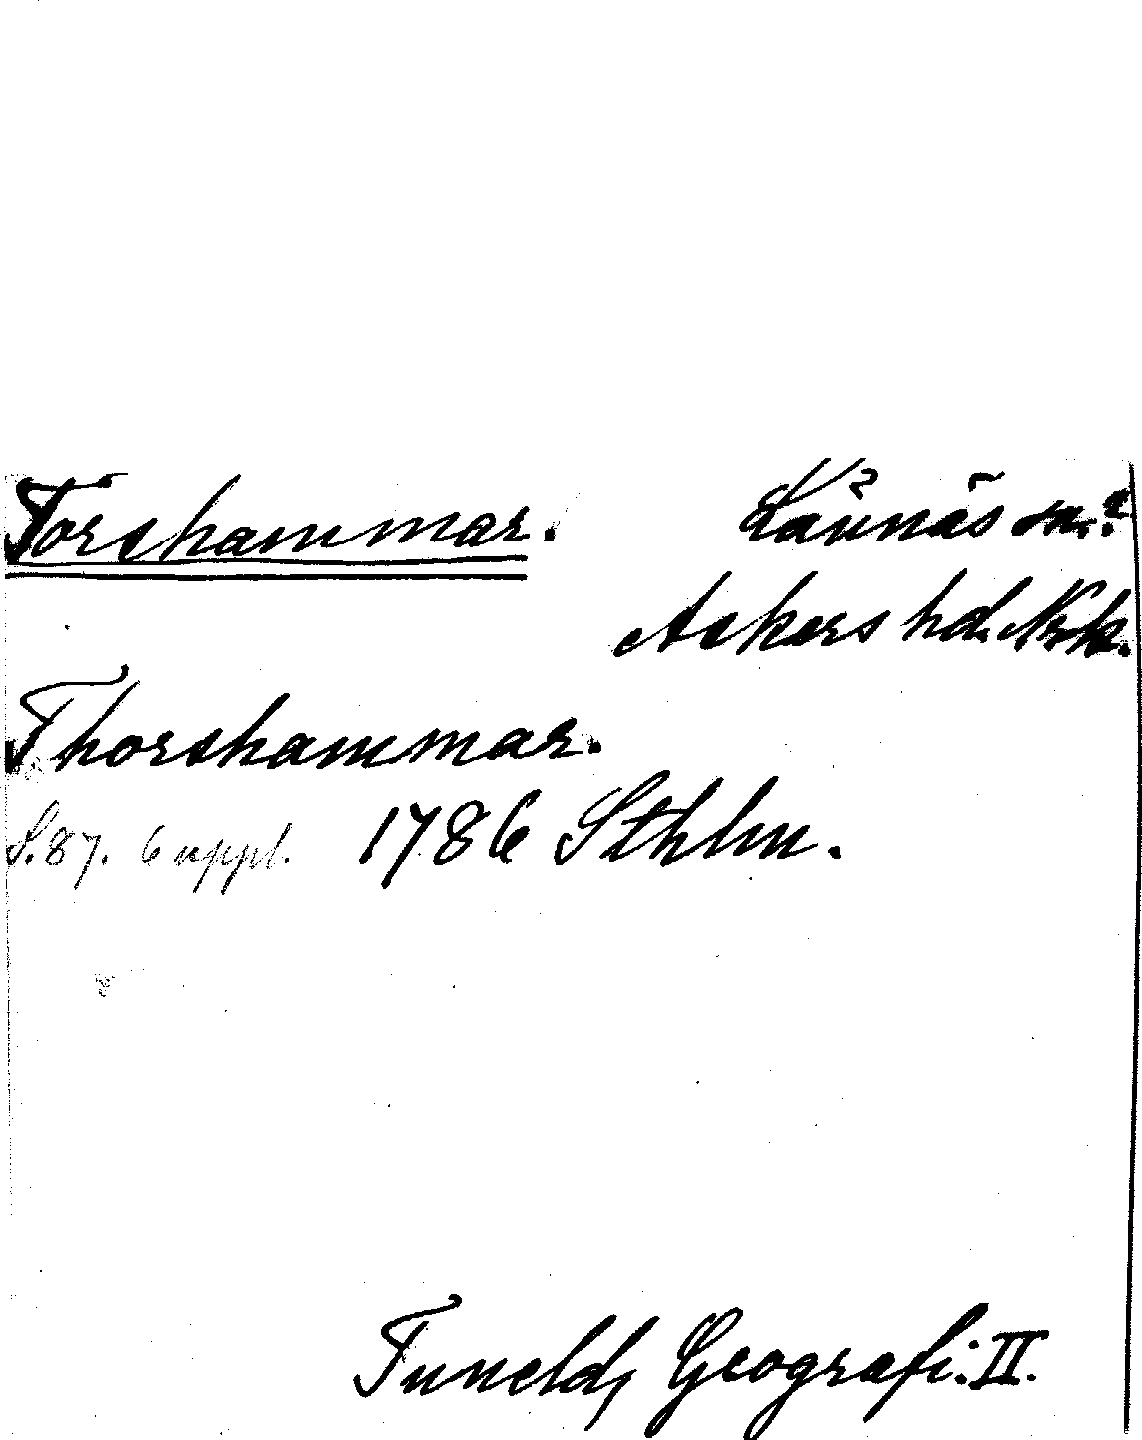 Torshammar. Lännäs sn.?
Askers hd. Nrk.
Thorshammar.
S.87. 6 uppl. 1786 Sthlm.
Tuneld, Geografi: II.